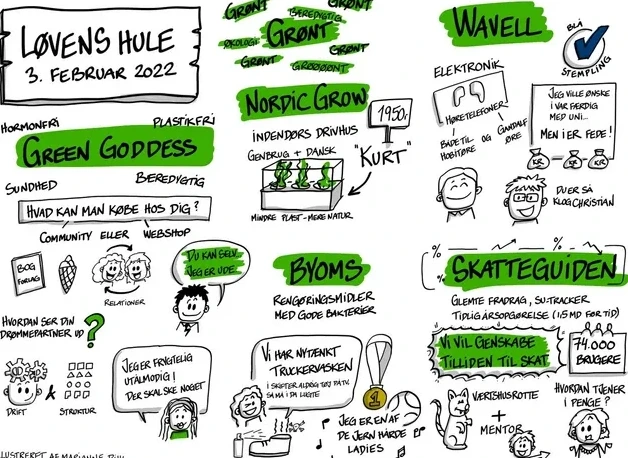 LØVENS HULE
3. FEBRUAR 2022
HORMONFRI
PLASTIKFRI
GREEN GODDESS
SUNDHED
BÆREDYGTIG
HVAD KAN MAN KØBE HOS DIG?
COMMUNITY ELLER WEBSHOP
BOG
FORLAG
RELATIONER
DU KAN SELV..
JEG ER UDE..
HVORDAN SER DIN
DRØMMEPARTNER UD?
DRIFT
&
STRUKTUR
JEG ER FRYGTELIG
UTÅLMODIG!
DER SKAL SKE NOGET
GRØNT
GRØNT
BÆREDYGTIG
GRØNT
ØKOLOGI
GRØNT
GRØNT
GRØNT
GRØØØØNT
NORDIC GROW
INDENDØRS DRIVHUS
GENBRUG + DANSK
1950,-
"KURT"
MINDRE PLAST - MERE NATUR
BYOMS
RENGØRINGSMIDLER
MED GODE BAKTERIER
VI HAR NYTÆNKT
TRUCKERVASKEN
I SKIFTER ALDRIG TØJ PÅ TV.
SÅ MÅ I DA LUGTE
1
JEG ER EN AF
DE JERN HÅRDE
LADIES
WAVELL
BLÅ
STEMPLING
ELEKTRONIK
HØRETELEFONER
BÅDE TIL
HOBITØRE
OG
GANDALF
ØRE
JEG VILLE ØNSKE
I VAR FÆRDIG
MED UNI...
MEN I ER FEDE!
KR
KR
KR
DU ER SÅ
KLOG CHRISTIAN
%
%
%
%
SKATTEGUIDEN
GLEMTE FRADRAG, SU-TRACKER
TIDLIG ÅRSOPGØRELSE (1,5 MD FØR TID)
VI VIL GENSKABE
TILLIDEN TIL SKAT
74.000
BRUGERE
VÆRTSHUSROTTE
+
MENTOR
HVORDAN TJENER
I PENGE?